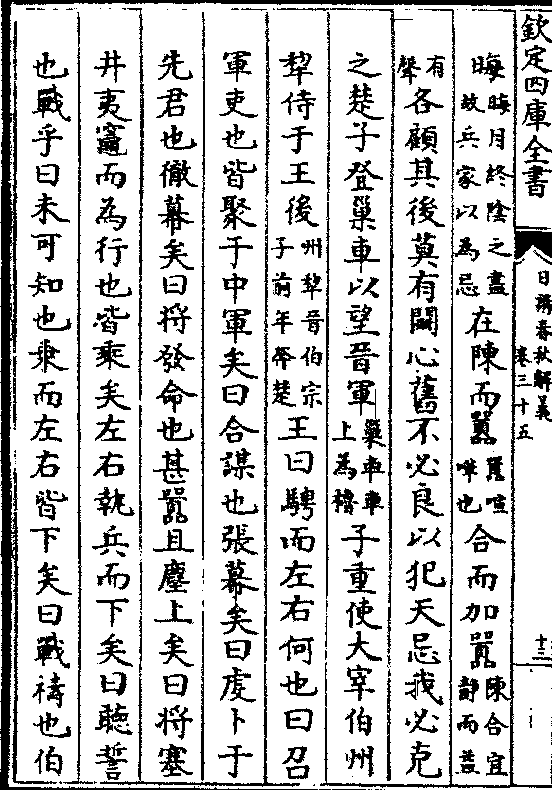 欽定四庫全書
日講春秋解義
卷三十五
十三
晦晦月終陰之盡故兵家以為忌在陳而嚻嚻喧嘩也合而加嚻陳合宜靜而益
有聲各顧其後莫有鬬心舊不必良以犯天忌我必克
之楚子登巢車以望晉軍巢車車上為櫓子重使大宰伯州
犂侍于王後州犂晉伯宗子前年奔楚王曰騁而左右何也曰召
軍吏也皆聚于中軍矣曰合謀也張幕矣曰虔卜于
先君也徹幕矣曰将發命也甚嚻且塵上矣曰将塞
井夷竈而為行也皆乘矣左右執兵而下矣曰聽誓
也戰乎曰未可知也乘而左右皆下矣曰戰禱也伯